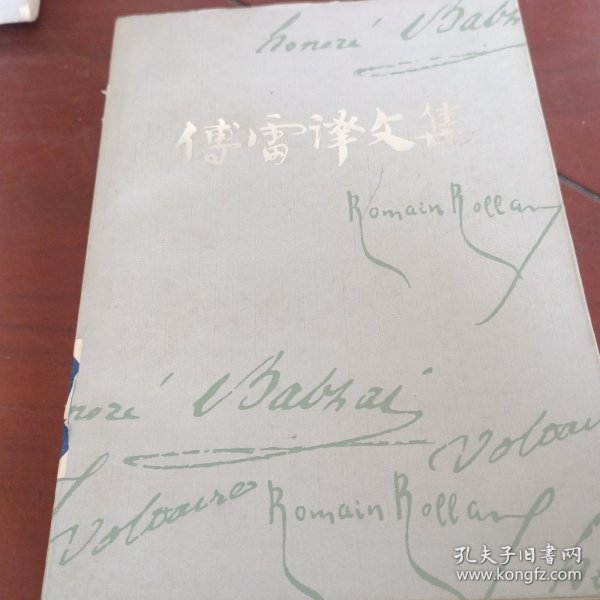 honoré Balzac
傅雷译文集
Romain Rolland
noré Balzac
Voltaire
Voltaire
Romain Rolland
孔夫子旧书网
www.kongfz.com